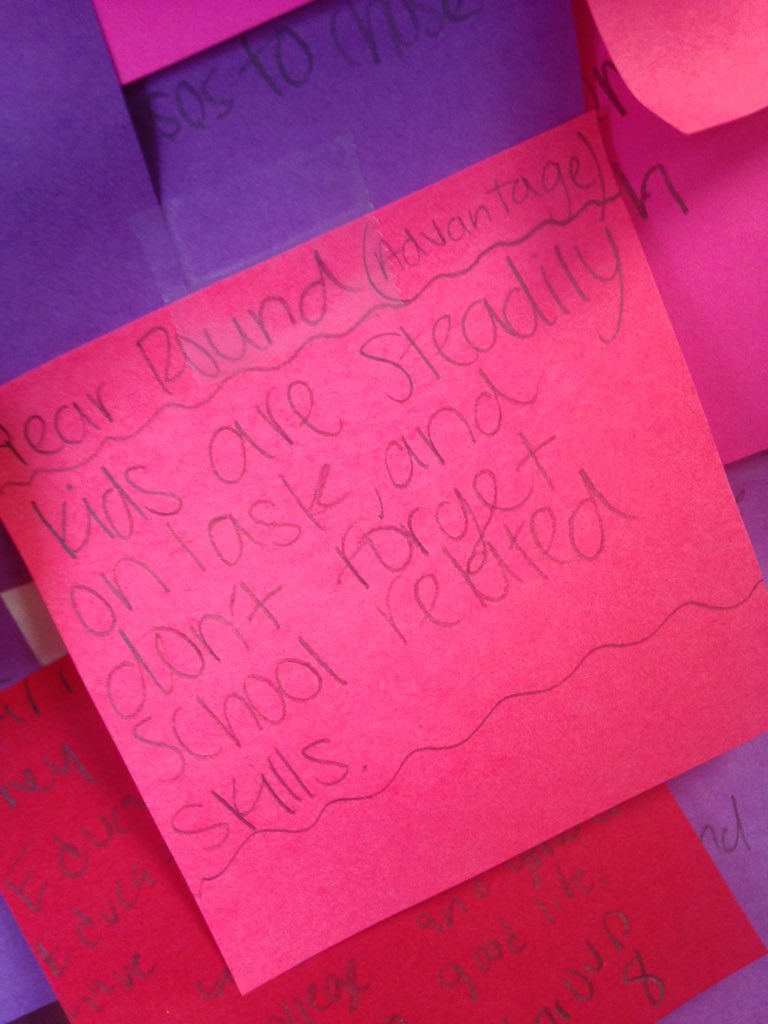 to chose
Year Round (Advantage)
kids are steadily
on task, and
don't forget
school related
skills.
have
good life.
Group
8